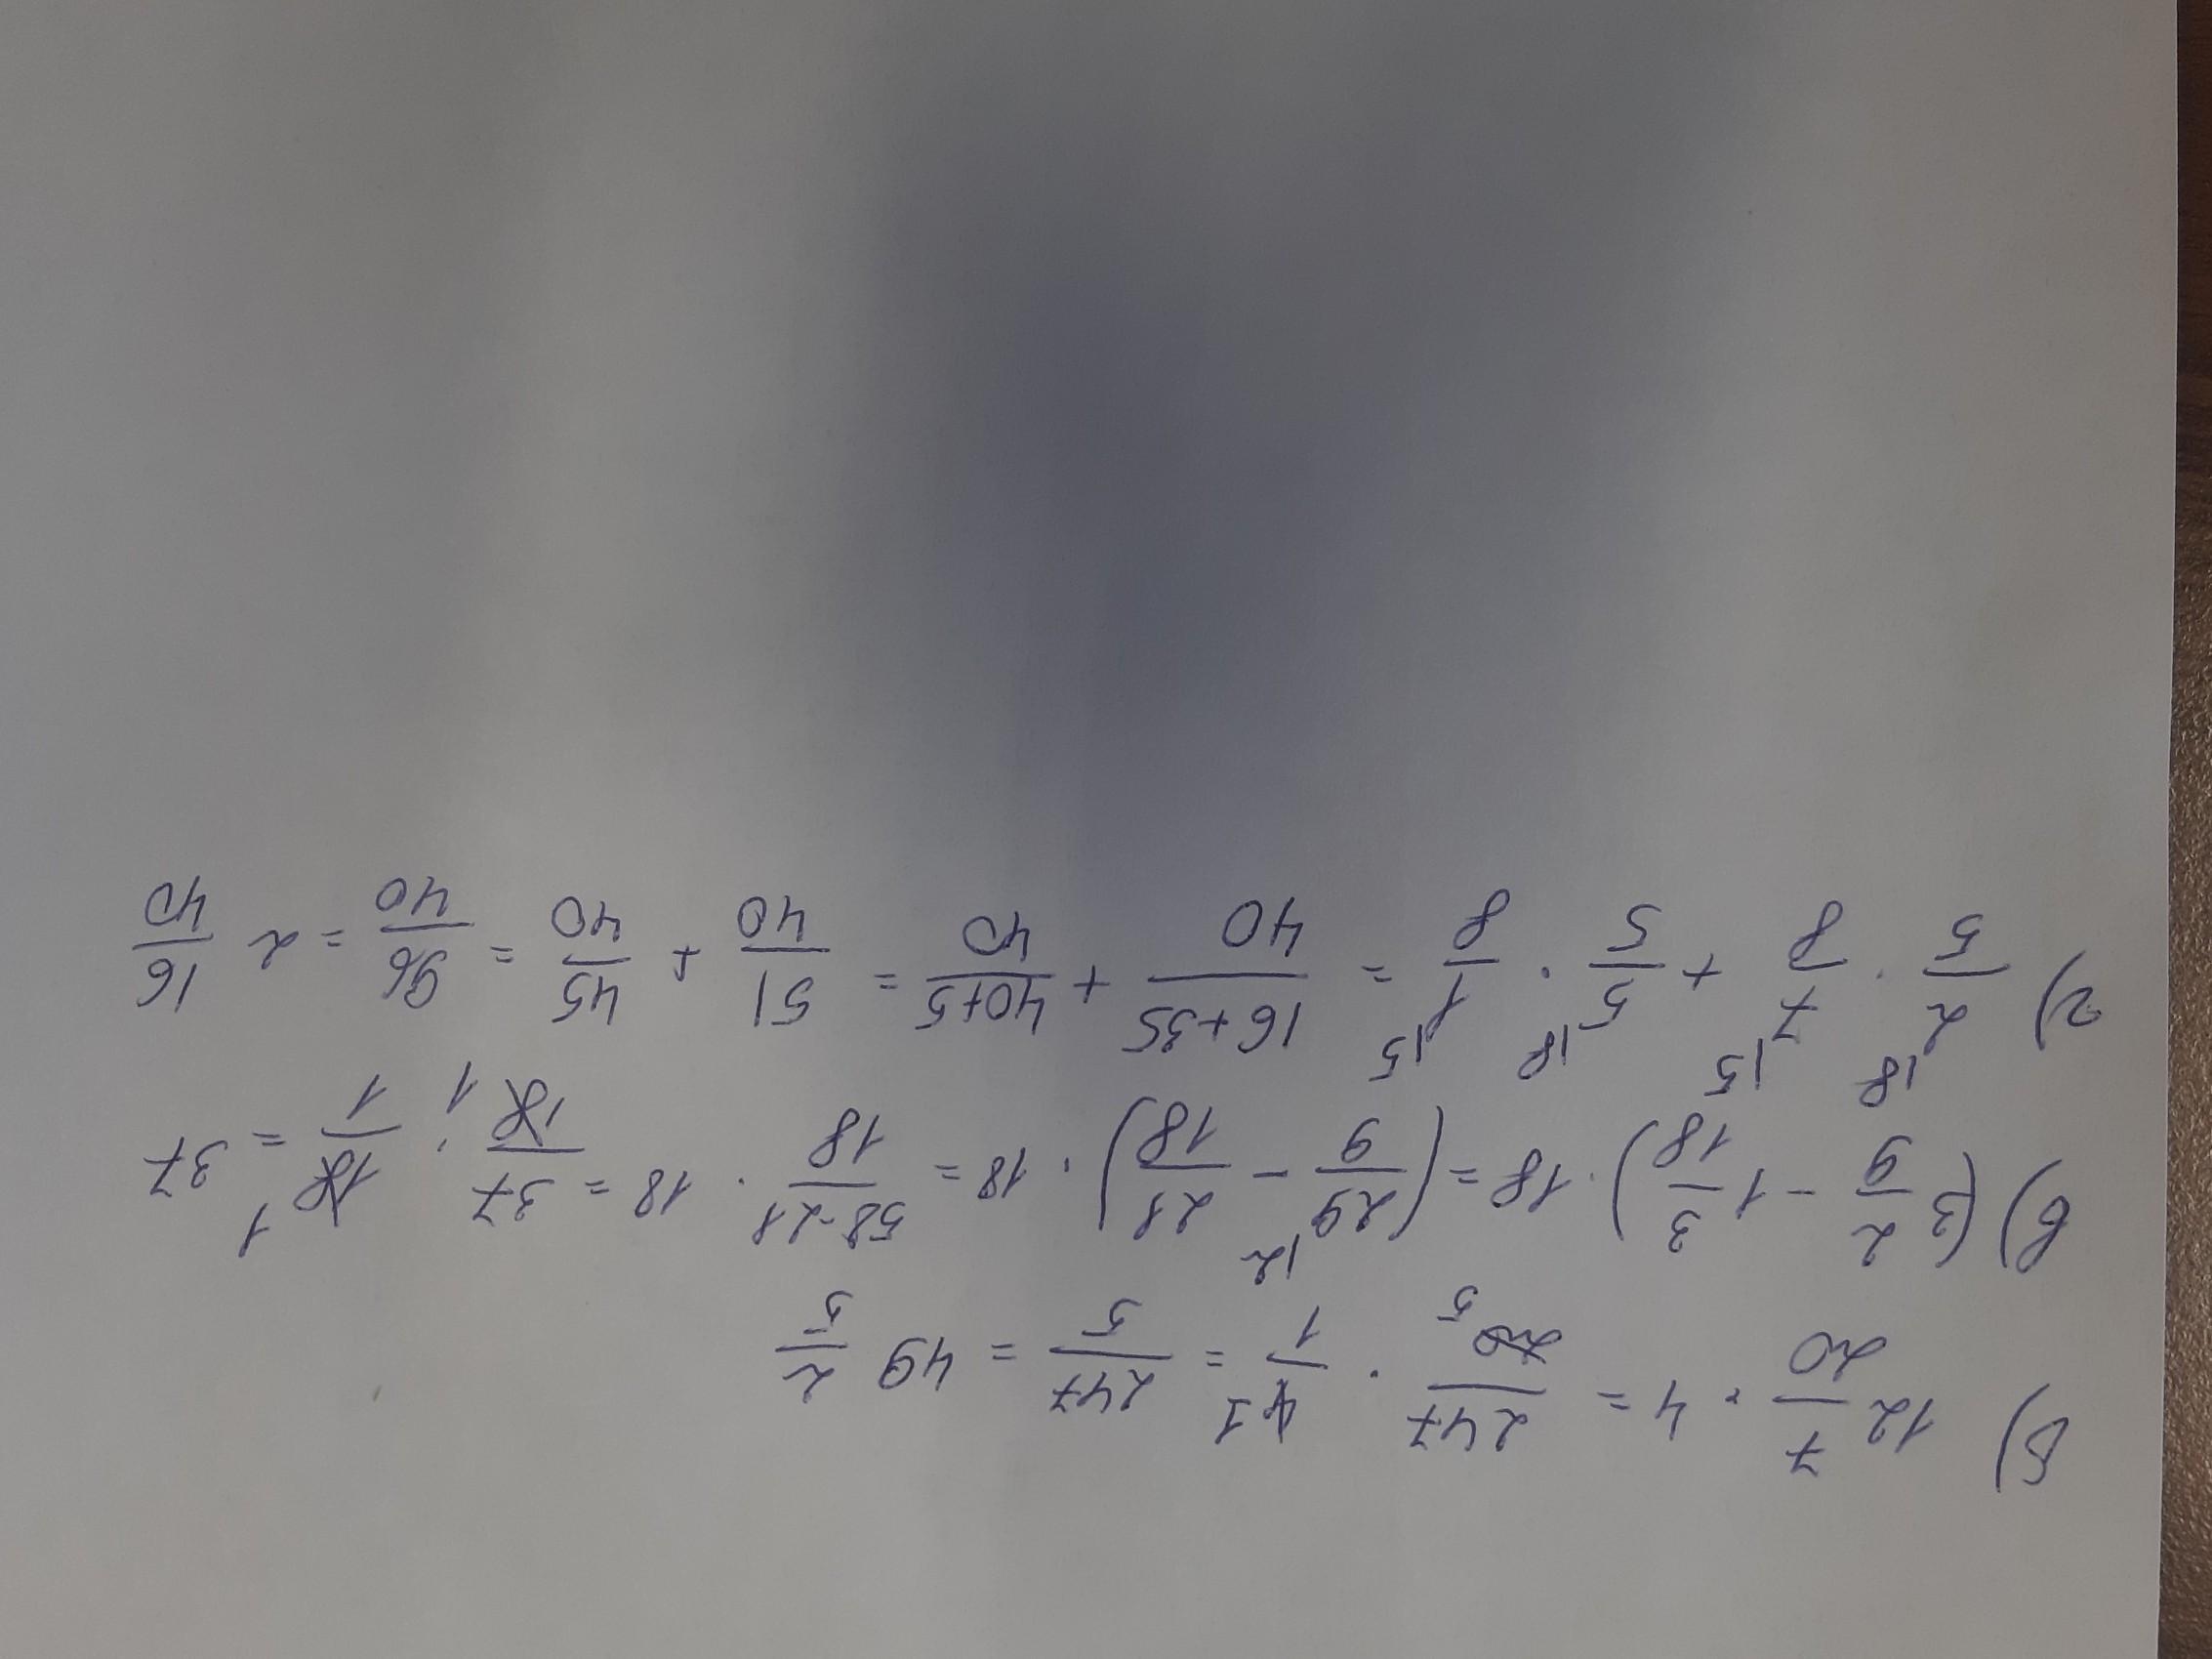 б) 12 7/20 · 4 = 247/20 5 · 4 1/1 = 247/5 = 49 2/5
в) (3 2/9 - 1 3/18) · 18 = (29/9 |2 - 21/18) · 18 = 58-21/18 · 18 = 37/18 1 · 18 1/1 = 37
г) 2/5 |8 · 7/8 |5 + 5/5 |8 · 1/8 |5 = 16+35/40 + 40+5/40 = 51/40 + 45/40 = 96/40 = 2 16/40